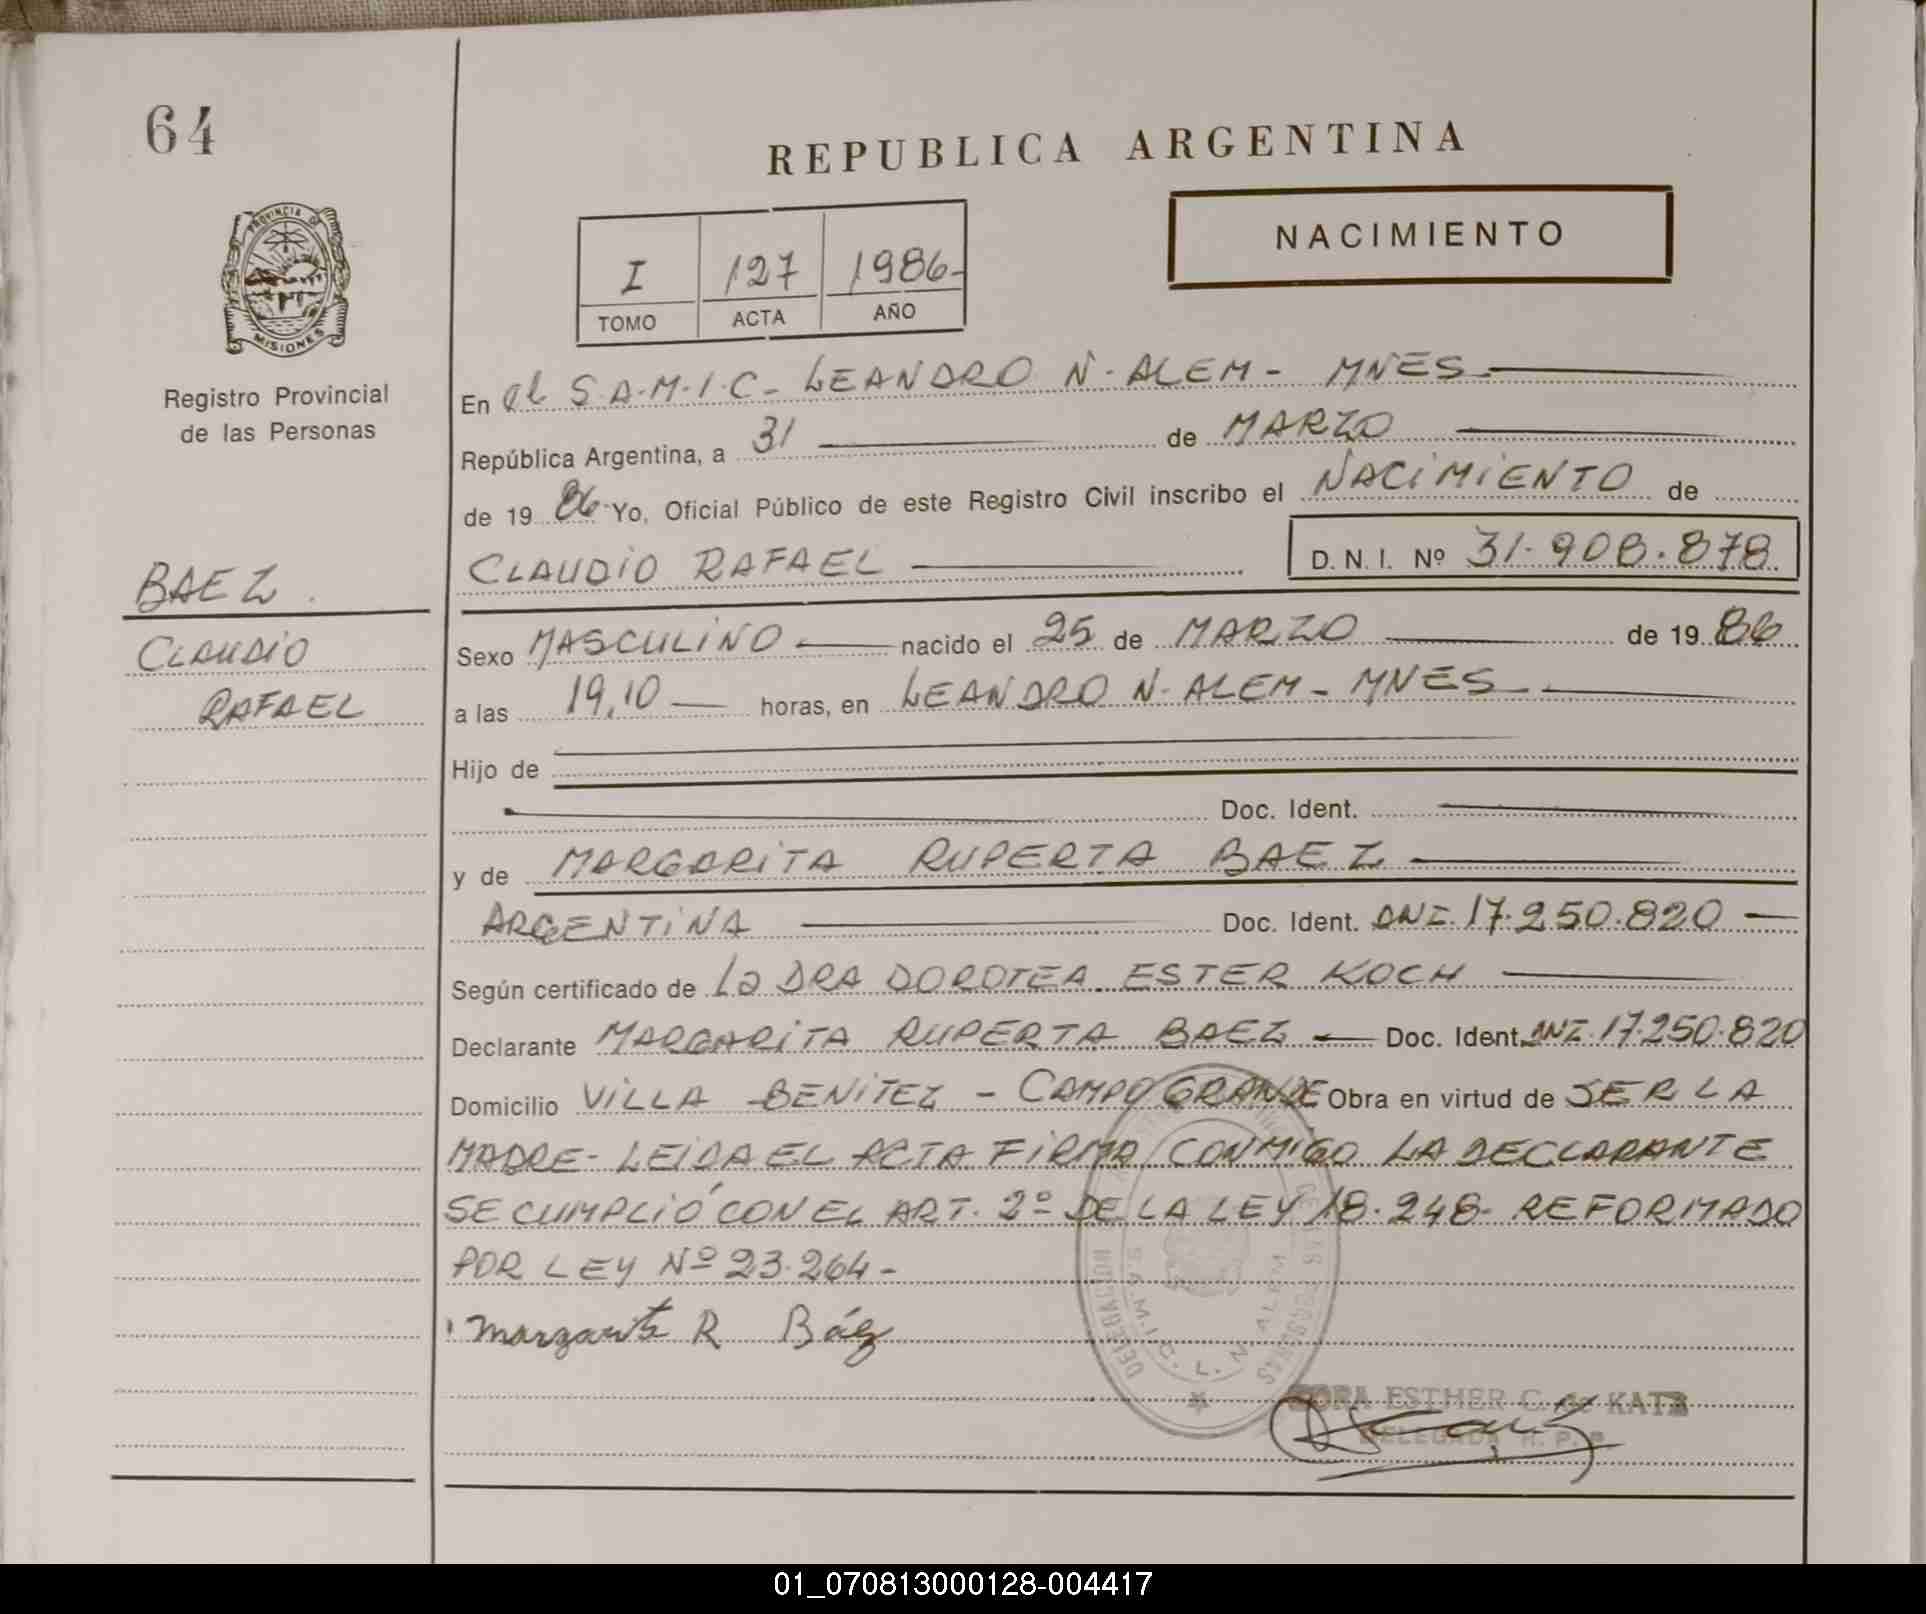 64
REPUBLICA ARGENTINA
NACIMIENTO
PROVINCIA DE
MISIONES
Registro Provincial
de las Personas
I 127 1986-
TOMO ACTA AÑO
En el S.A.M.I.C- LEANDRO N. ALEM- MNES-
República Argentina, a 31 de MARZO
de 19 86 Yo, Oficial Público de este Registro Civil inscribo el NACIMIENTO de
CLAUDIO RAFAEL D.N.I. Nº 31.908.878
BAEZ.
CLAUDIO
RAFAEL
Sexo MASCULINO nacido el 25 de MARZO de 19 86
a las 19,10 horas, en LEANDRO N. ALEM- MNES-
Hijo de
Doc. Ident.
y de MARGARITA RUPERTA BAEZ
ARGENTINA Doc. Ident. DNI. 17.250.820
Según certificado de La DRA DOROTEA ESTER KOCH
Declarante MARGARITA RUPERTA BAEZ Doc. Ident. DNI. 17.250.820
Domicilio VILLA BENITEZ - CAMPO GRANDE Obra en virtud de SER LA
MADRE- LEIDA EL ACTA FIRMA CONMIGO LA DECLARANTE
SE CUMPLIÓ CON EL ART. 2º DE LA LEY 18.248- REFORMADO
POR LEY Nº 23.264-
Margarita R Báez
DELEGACION
S.A.M.I.C. L. N. ALEM
ESTHER C. de KATZ
DELEGADA R. P. P.
01_070813000128-004417